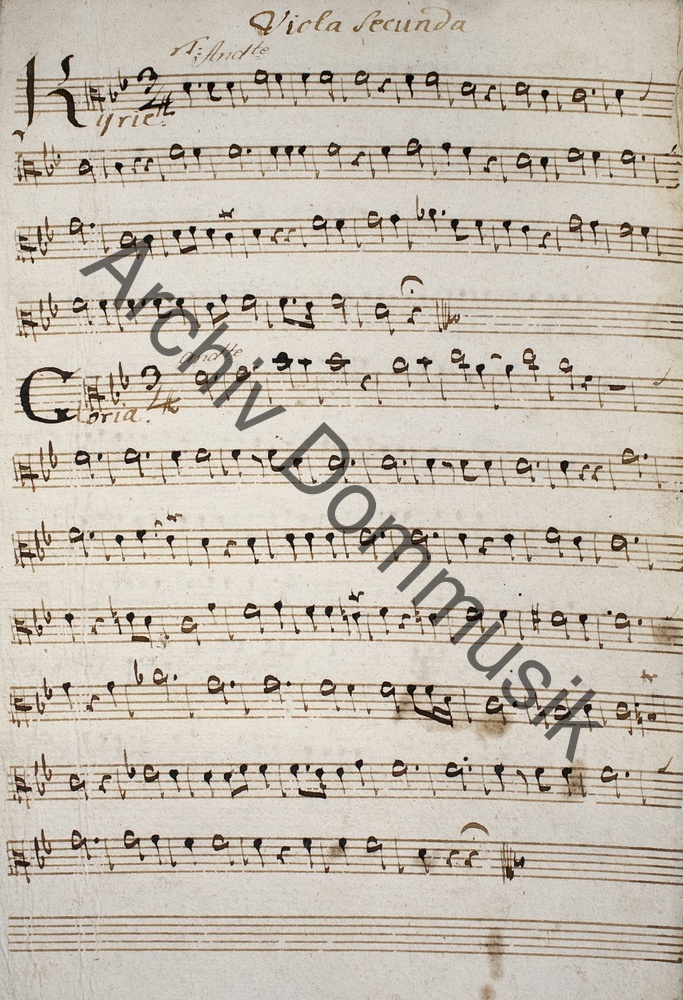 Viola Secunda
Andte
Kyrie.
3/4
andtte
Gloria.
3/4
Archiv Dommusik